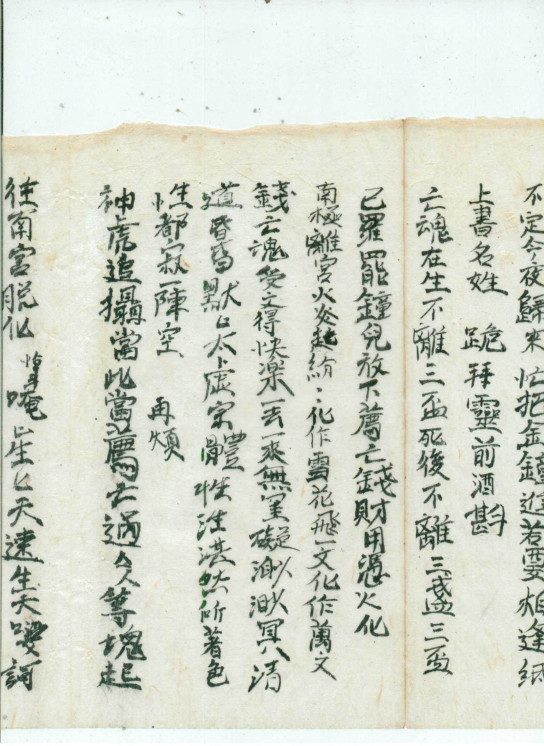 不定今夜歸來忙把金鐘進若要相逢紙
上書名姓 跪拜靈前酒斟
亡魂在生不離三盃死後不離三盞三盃
已羅罷鐘兒放下薦亡錢財用憑火化
南極離宮火炎起紛〻化作雪花飛一文化作萬文
錢亡魂受文得快樂一去一來無罣礙渺渺冥八清
道昏昏默口太上虛宗體性汪湛然所著色
性都寂一陣空 再煩
神虎追攝當此當薦亡過久等魂起
往南宮脫化 唵 生亡天逮生天 訶